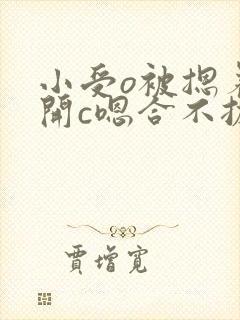 小受o被摁着
開c嗯合不拢
賈增寬